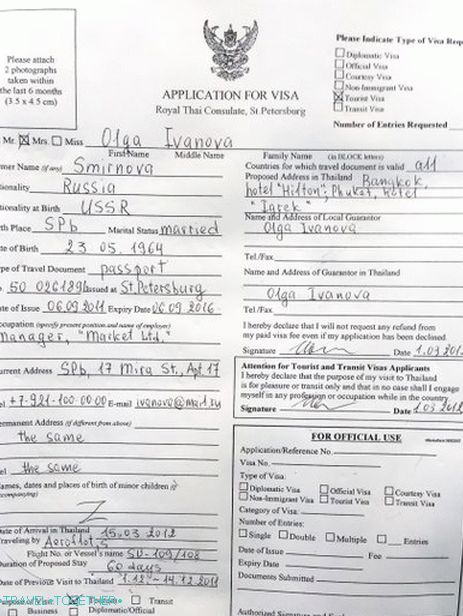 Please attach
2 photographs
taken within
the last 6 months
(3.5 x 4.5 cm)
APPLICATION FOR VISA
Royal Thai Consulate, St.Petersburg
Please Indicate Type of Visa Requ
Diplomatic Visa
Official Visa
Courtesy Visa
Non-Immigrant Visa
Tourist Visa
Transit Visa
Number of Entries Requested
Mr. Mrs. Miss Olga Ivanova
First Name Middle Name Family Name (in BLOCK letters)
mer Name (if any) Smirnova
tionality Russia
tionality at Birth USSR
rth Place SPb Marital Status married
te of Birth 23 05. 1964
pe of Travel Document passport
50 026189 Issued at St.Petersburg
te of Issue 06.09.2011 Expiry Date 06 09 2016
cupation (specify present position and name of employer)
manager, "Market Ltd."
urrent Address SPb, 17 Mira St., Apt. 17
el +7-921-100 00 00 E-mail ivanova@mail.ru
ermanent Address (if different from above)
the same
el the same
ames, dates and places of birth of minor children (if
ccompanying)
Z
ate of Arrival in Thailand 15.03 2012
raveling by Aeroflot
Flight No. or Vessel's name SU-109/108
uration of Proposed Stay 60 days
ate of Previous Visit to Thailand 1.12 - 14.12 2011
urpose of Visit: Tourist Transit
Business Diplomatic/Official
Countries for which travel document is valid all
Proposed Address in Thailand Bangkok,
hotel "Hilton"; Phuket, hotel
Name and Address of Local Guarantor
Olga Ivanova
Tel./Fax
Name and Address of Guarantor in Thailand
Olga Ivanova
Tel./Fax
I hereby declare that I will not request any refund from
my paid visa fee even if my application has been declined.
Signature Date 1.03 201
Attention for Tourist and Transit Visas Applicants
I hereby declare that the purpose of my visit to Thailand
is for pleasure or transit only and that in no case shall I engage
myself in any profession or occupation while in the country.
Signature Date 1 03 2012
FOR OFFICIAL USE
Application/Reference No.
Visa No.
Type of Visa:
Diplomatic Visa Official Visa Courtesy Visa
Non-Immigrant Visa Tourist Visa Transit Visa
Category of Visa:
Number of Entries:
Single Double Multiple Entries
Date of Issue Fee
Expiry Date
Documents Submitted
Authorized Signature and
TRAVEL-TOGETHER